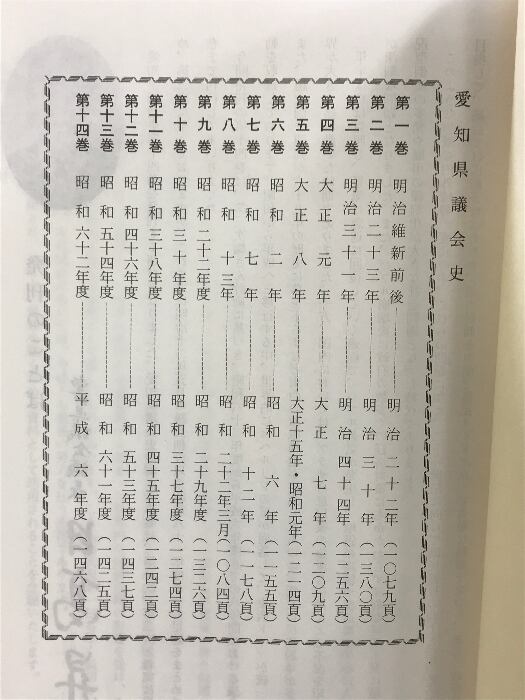 愛知県議会史
第一巻 明治維新前後 明治二十二年(一〇七九頁)
第二巻 明治二十三年 明治三十年(一三八〇頁)
第三巻 明治三十一年 明治四十四年(一二五六頁)
第四巻 大正元年 大正七年(一二〇九頁)
第五巻 大正八年 大正十五年・昭和元年(一二一四頁)
第六巻 昭和二年 昭和六年(一一五五頁)
第七巻 昭和七年 昭和十二年(一一七八頁)
第八巻 昭和十三年 昭和二十二年三月(一〇八四頁)
第九巻 昭和二十二年度 昭和二十九年度(一三二六頁)
第十巻 昭和三十年度 昭和三十七年度(一二七四頁)
第十一巻 昭和三十八年度 昭和四十五年度(一二四二頁)
第十二巻 昭和四十六年度 昭和五十三年度(一四三七頁)
第十三巻 昭和五十四年度 昭和六十一年度(一四二五頁)
第十四巻 昭和六十二年度 平成六年度(一四六八頁)